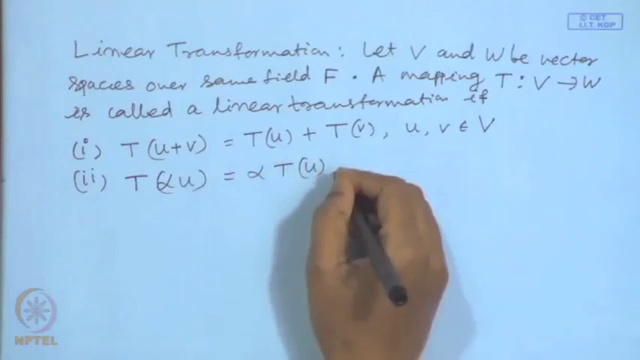 © CET
I.I.T. KGP
Linear Transformation: Let V and W be vector
spaces over same field F. A mapping T: V → W
is called a linear transformation if
(i) T(u+v) = T(u) + T(v), u, v ∈ V
(ii) T(αu) = α T(u),
NPTEL